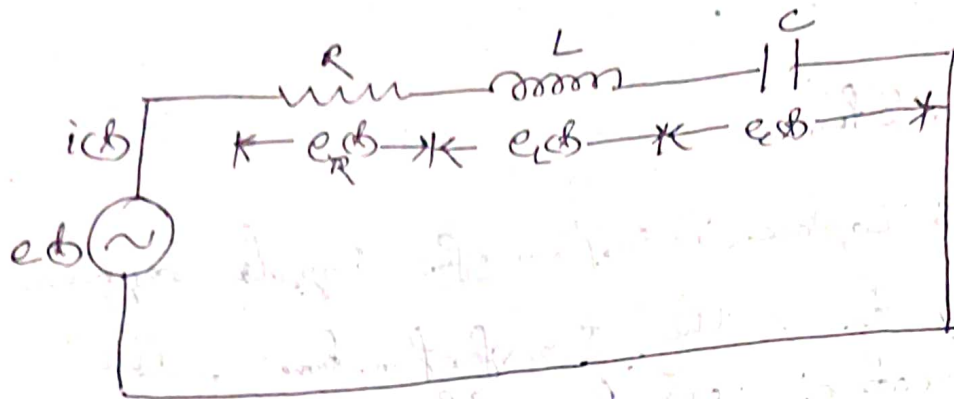 R L C
i(t) e_R(t) e_L(t) e_c(t)
e(t)